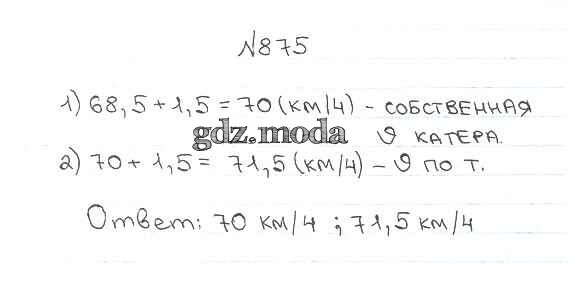 №875
1) 68,5 + 1,5 = 70 (км/ч) - собственная
gdz.moda
υ катера.
2) 70 + 1,5 = 71,5 (км/ч) – υ по т.
Ответ: 70 км/ч ; 71,5 км/ч